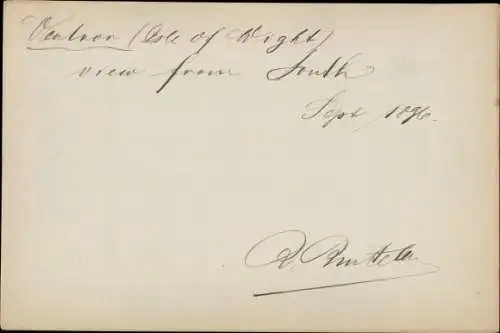 Ventnor (Isle of Wight)
view from South
Sept 1896.